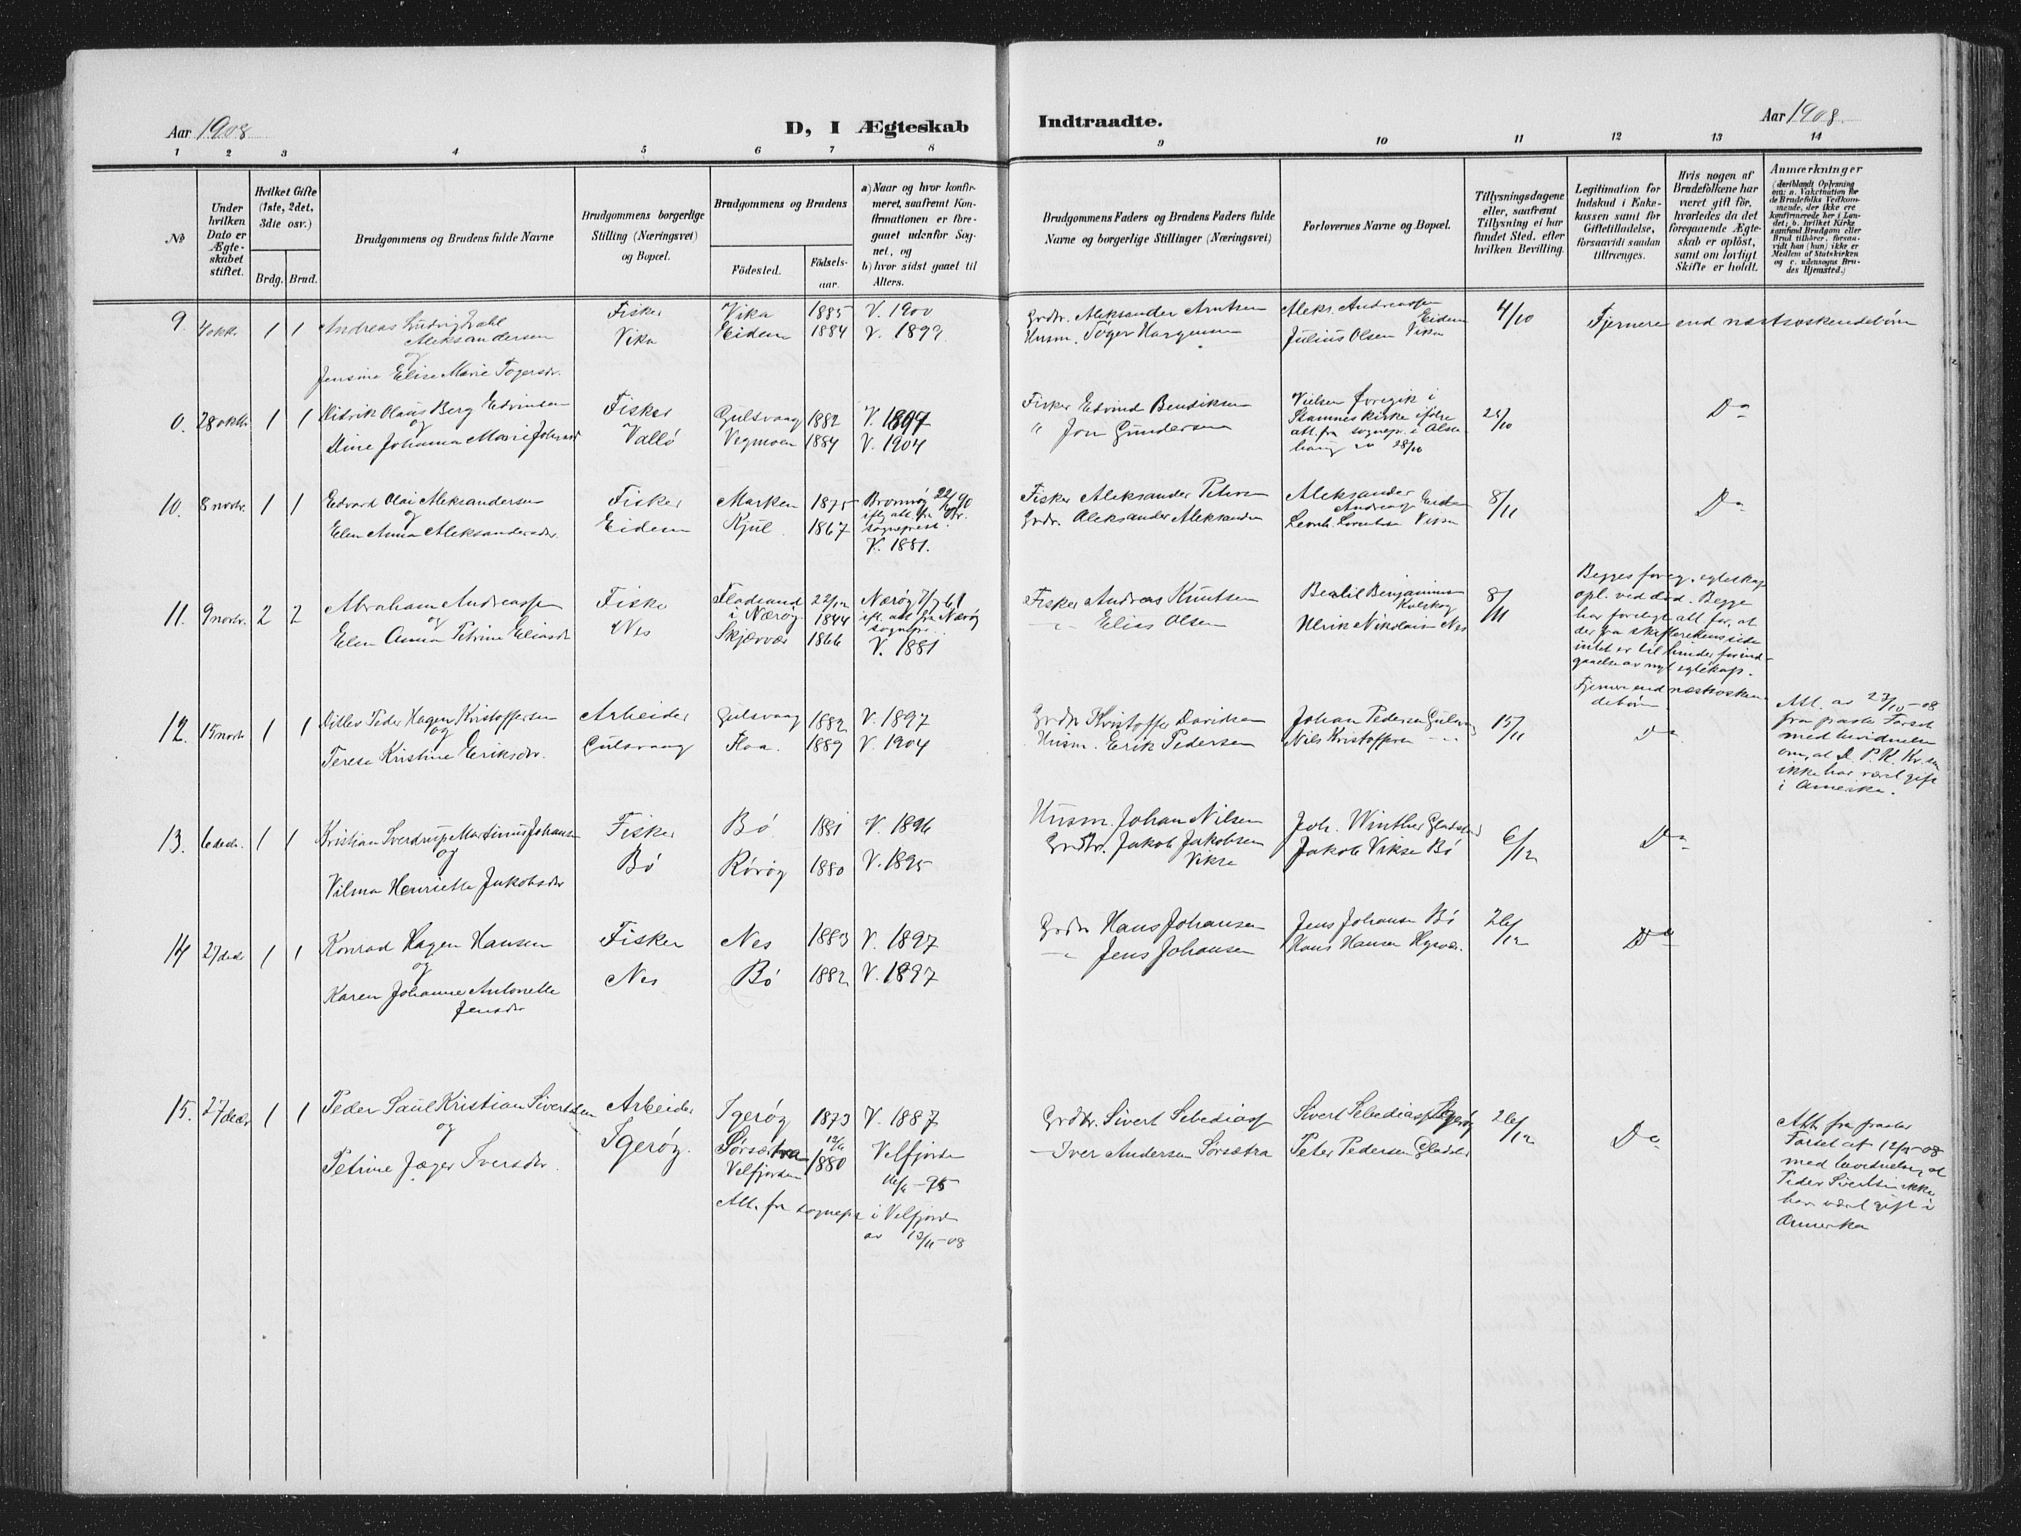 Aar 1908
D, I Ægteskab
Indtraadte.
Aar 1908.
1 2 3 4 5 6 7 8 9 10 11 12 13 14
No
Under hvilken Dato er Ægteskabet stiftet.
Hvilket Gifte (1ste, 2det, 3die osv.)
Brdg. Brud.
Brudgommens og Brudens fulde Navne
Brudgommens borgerlige Stilling (Næringsvei) og Bopæl.
Brudgommens og Brudens
Fødested.
Fødselsaar.
a) Naar og hvor konfirmeret, saafremt Konfirmationen er foregaaet udenfor Sognet, og
b) hvor sidst gaaet til Alters.
Brudgommens Faders og Brudens Faders fulde Navne og borgerlige Stillinger (Næringsvei)
Forlovernes Navne og Bopæl.
Tillysningsdagene eller, saafremt Tillysning ei har fundet Sted, efter hvilken Bevilling.
Legitimation for Indskud i Enkekassen samt for Giftetilladelse, forsaavidt saadan tiltrænges.
Hvis nogen af Brudefolkene har været gift før, hvorledes da det foregaaende Ægteskab er opløst, samt om lovligt Skifte er holdt.
Anmærkninger
(deriblandt Oplysning om: a. Vakcination for de Brudefolks Vedkommende, der ikke ere konfirmerede her i Landet, b. hvilket Kirkesamfund Brudgom eller Brud tilhører, forsaavidt han (hun) ikke er Medlem af Statskirken og c. udensogns Brudes Hjemsted.)
9. 4 oktr. 1 1 Andreas Ludvig Dahl Fisker Vika 1885 V. 1900 Grdbr. Aleksander Arntsen Aleks. Andreassen Eidem 4/10 Fjernere end næstsøskendebørn
Aleksandersen Vika Eidem 1884 V. 1899 Husm. Tøger Hargensen Julius Olsen Vika
og
Jensine Elise Marie Tøgersdr.
0. 28 oktr. 1 1 Didrik Olaus Berg Edvinsen Fisker Gulsvaag 1882 V. 1897 Fisker Edvind Bendiksen Vielsen foregik i 25/10 Do
og Vallø Vegmoen 1884 V. 1904 " Jon Gundersen Stamnes kirke ifølge
Stine Johanna Marie Johnsdr att. fra sognepr. i Alstahaug av 28/10
10. 8 novbr. 1 1 Edvard Olai Aleksandersen Fisker Marken 1875 Brønnøy 22/6 90 Fisker Aleksander Petersen Aleksander Andreass. Eidem 8/11 Do
og Eidem Kjul 1867 iflg. att. fra Br. sogneprest. Grdbr. Aleksander Aleksandersen Leonh. Lorentsen
Elen Anna Aleksandersdr V. 1881.
11. 9 novbr. 2 2 Abraham Andreassen Fisker Fladsund i Nærøy 22/12 1844 Nærøy 7/7 61 Fisker Andreas Knutsen 8/11 Begges foreg. egteskap
og Nes Skjærvær 1866 ifl. att fra Nærøy sognepr. V. 1881 — " — Elias Olsen Ulrik Nikolaisen Nes opl. ved død. Begge
Elen Anna Petrine Eliasdr har forelagt att. for, at
der fra skifterettens side
intet er til hinder for indgaaelse av nyt egteskap.
Fjernere end næstsøskendebørn
12. 15 novbr 1 1 Ditlev Peder Hagen Kristoffersen Arbeider Gulsvaag 1882 V. 1897 Grdbr Kristoffer Davidsen Johan Pedersen Gulsvaag 15/11 Do
og Gulsvaag Floa. 1889 V. 1904 Husm. Erik Pedersen Nils Kristoffersen — " —
Terese Kristine Eriksdr.
Att. av 23/10-08
fra præste Farset
med bevidnelse
om, at D. P. H. Kr.sen
ikke har været gift
i Amerika.
13. 6 decbr. 1 1 Kristian Sverdrup Martinus Johansen Fisker Bø 1881 V. 1896 Husm. Johan Nilsen Joh. Winther Gladstad 6/12 Do
og Bø Rørøy 1880 V. 1895 Grdbr. Jakob Jakobsen Vikse Jakob Vikse Bø
Vilma Henriette Jakobsdr
14 27 decbr 1 1 Konrad Hagen Hansen Fisker Nes 1883 V. 1897 Grdbr Hans Johansen Jens Johansen Bø 26/12 Do
og Nes Bø 1882 V. 1897 — " — Jens Johansen Hans Hansen
Karen Johanne Antonette
Jensdr
15. 27 decbr 1 1 Peder Saul Kristian Sivertsen Arbeider Igerøy 1873 V. 1887 Grdbr. Sivert Sebediass Sivert Sebediass Igerøy 26/12 Do
og Igerøy. Sørsætra Velfjorden 12/6 1880 Velfjorden 16/6-95 — Iver Andersen Sørsætra Peter Pedersen Gladstad
Petrine Jæger Iversdr.
Att. fra sognepr i Velfjord
av 12/11-08
Att. fra præster
Farset af 12/11-08
med bevidnelse, at
Peder Sivertsen ikke
har været gift i
Amerika